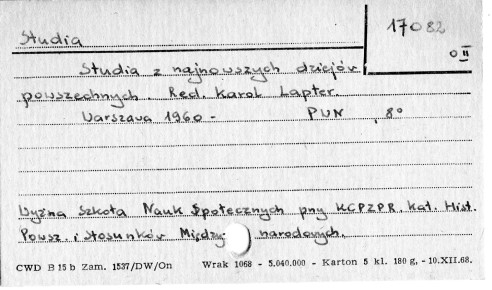 Studia
17082
0 II
Studia z najnowszych dziejów
powszechnych. Red. Karol Lapter.
Warszawa 1960 - PWN , 8°
Wyżna Szkoła Nauk Społecznych pny KCPZPR. kat. Hist.
Powsz. i stosunków Między narodowych.
CWD B 15 b Zam. 1537/DW/On Wrak 1068 - 5.040.000 - Karton 5 kl. 180 g, - 10.XII.68.